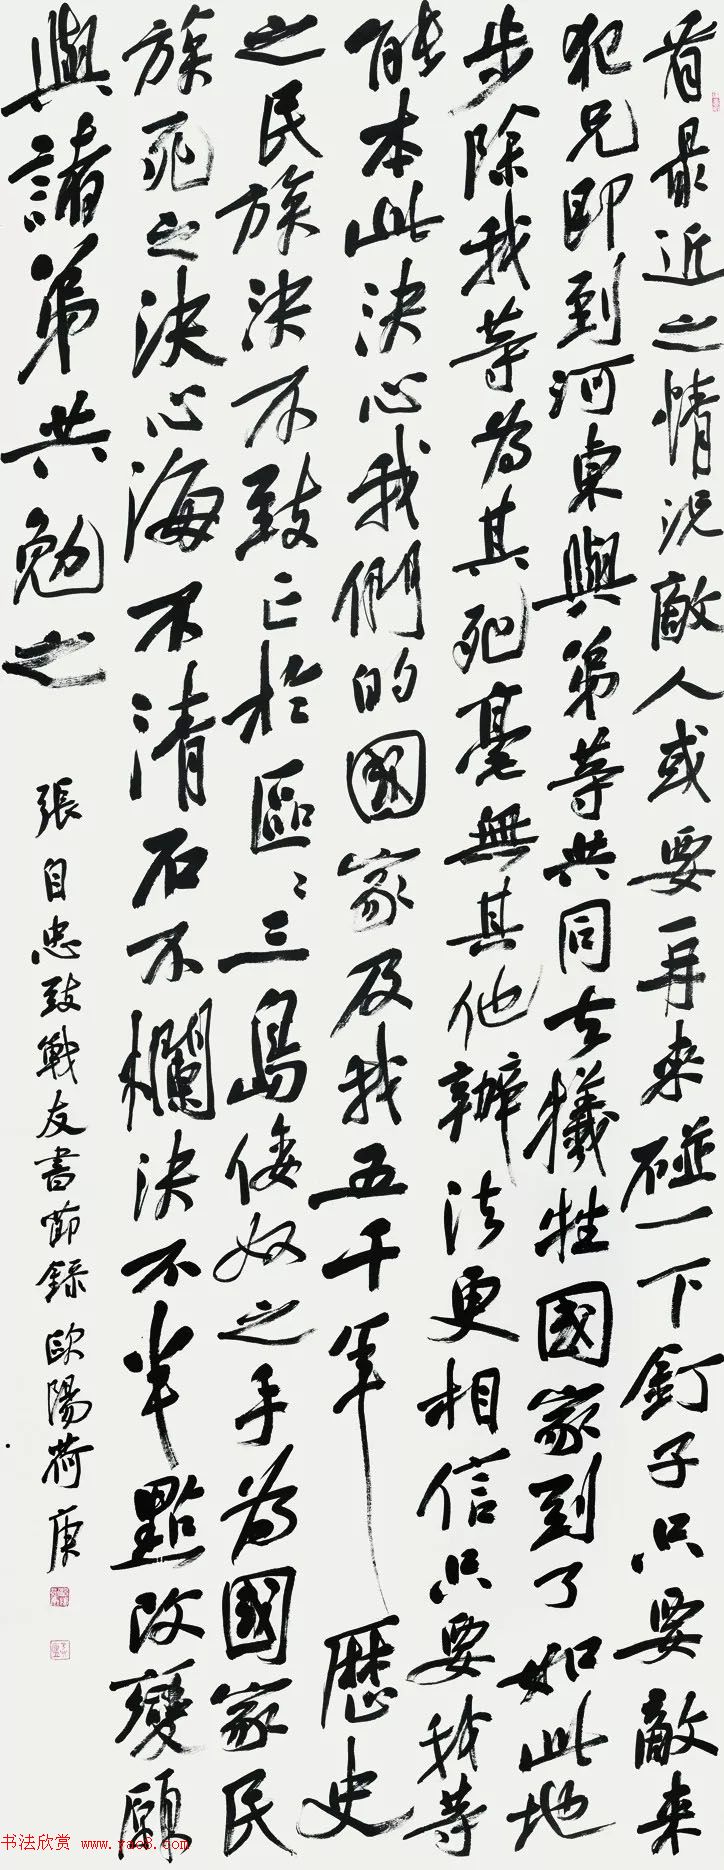 看最近之情况敵人或要再来碰一下釘子只要敵来
犯兄即到河東與弟等共同去犧牲國家到了如此地
步除我等為其死毫無其他辦法更相信只要我等
能本此決心我們的國家及我五千年歷史
之民族決不致亡於區區三島倭奴之手為國家民
族死之決心海不清石不爛決不半點改變願
與諸弟共勉之
張自忠致戰友書節録 歐陽荷庚
书法欣赏 www.yac8.com